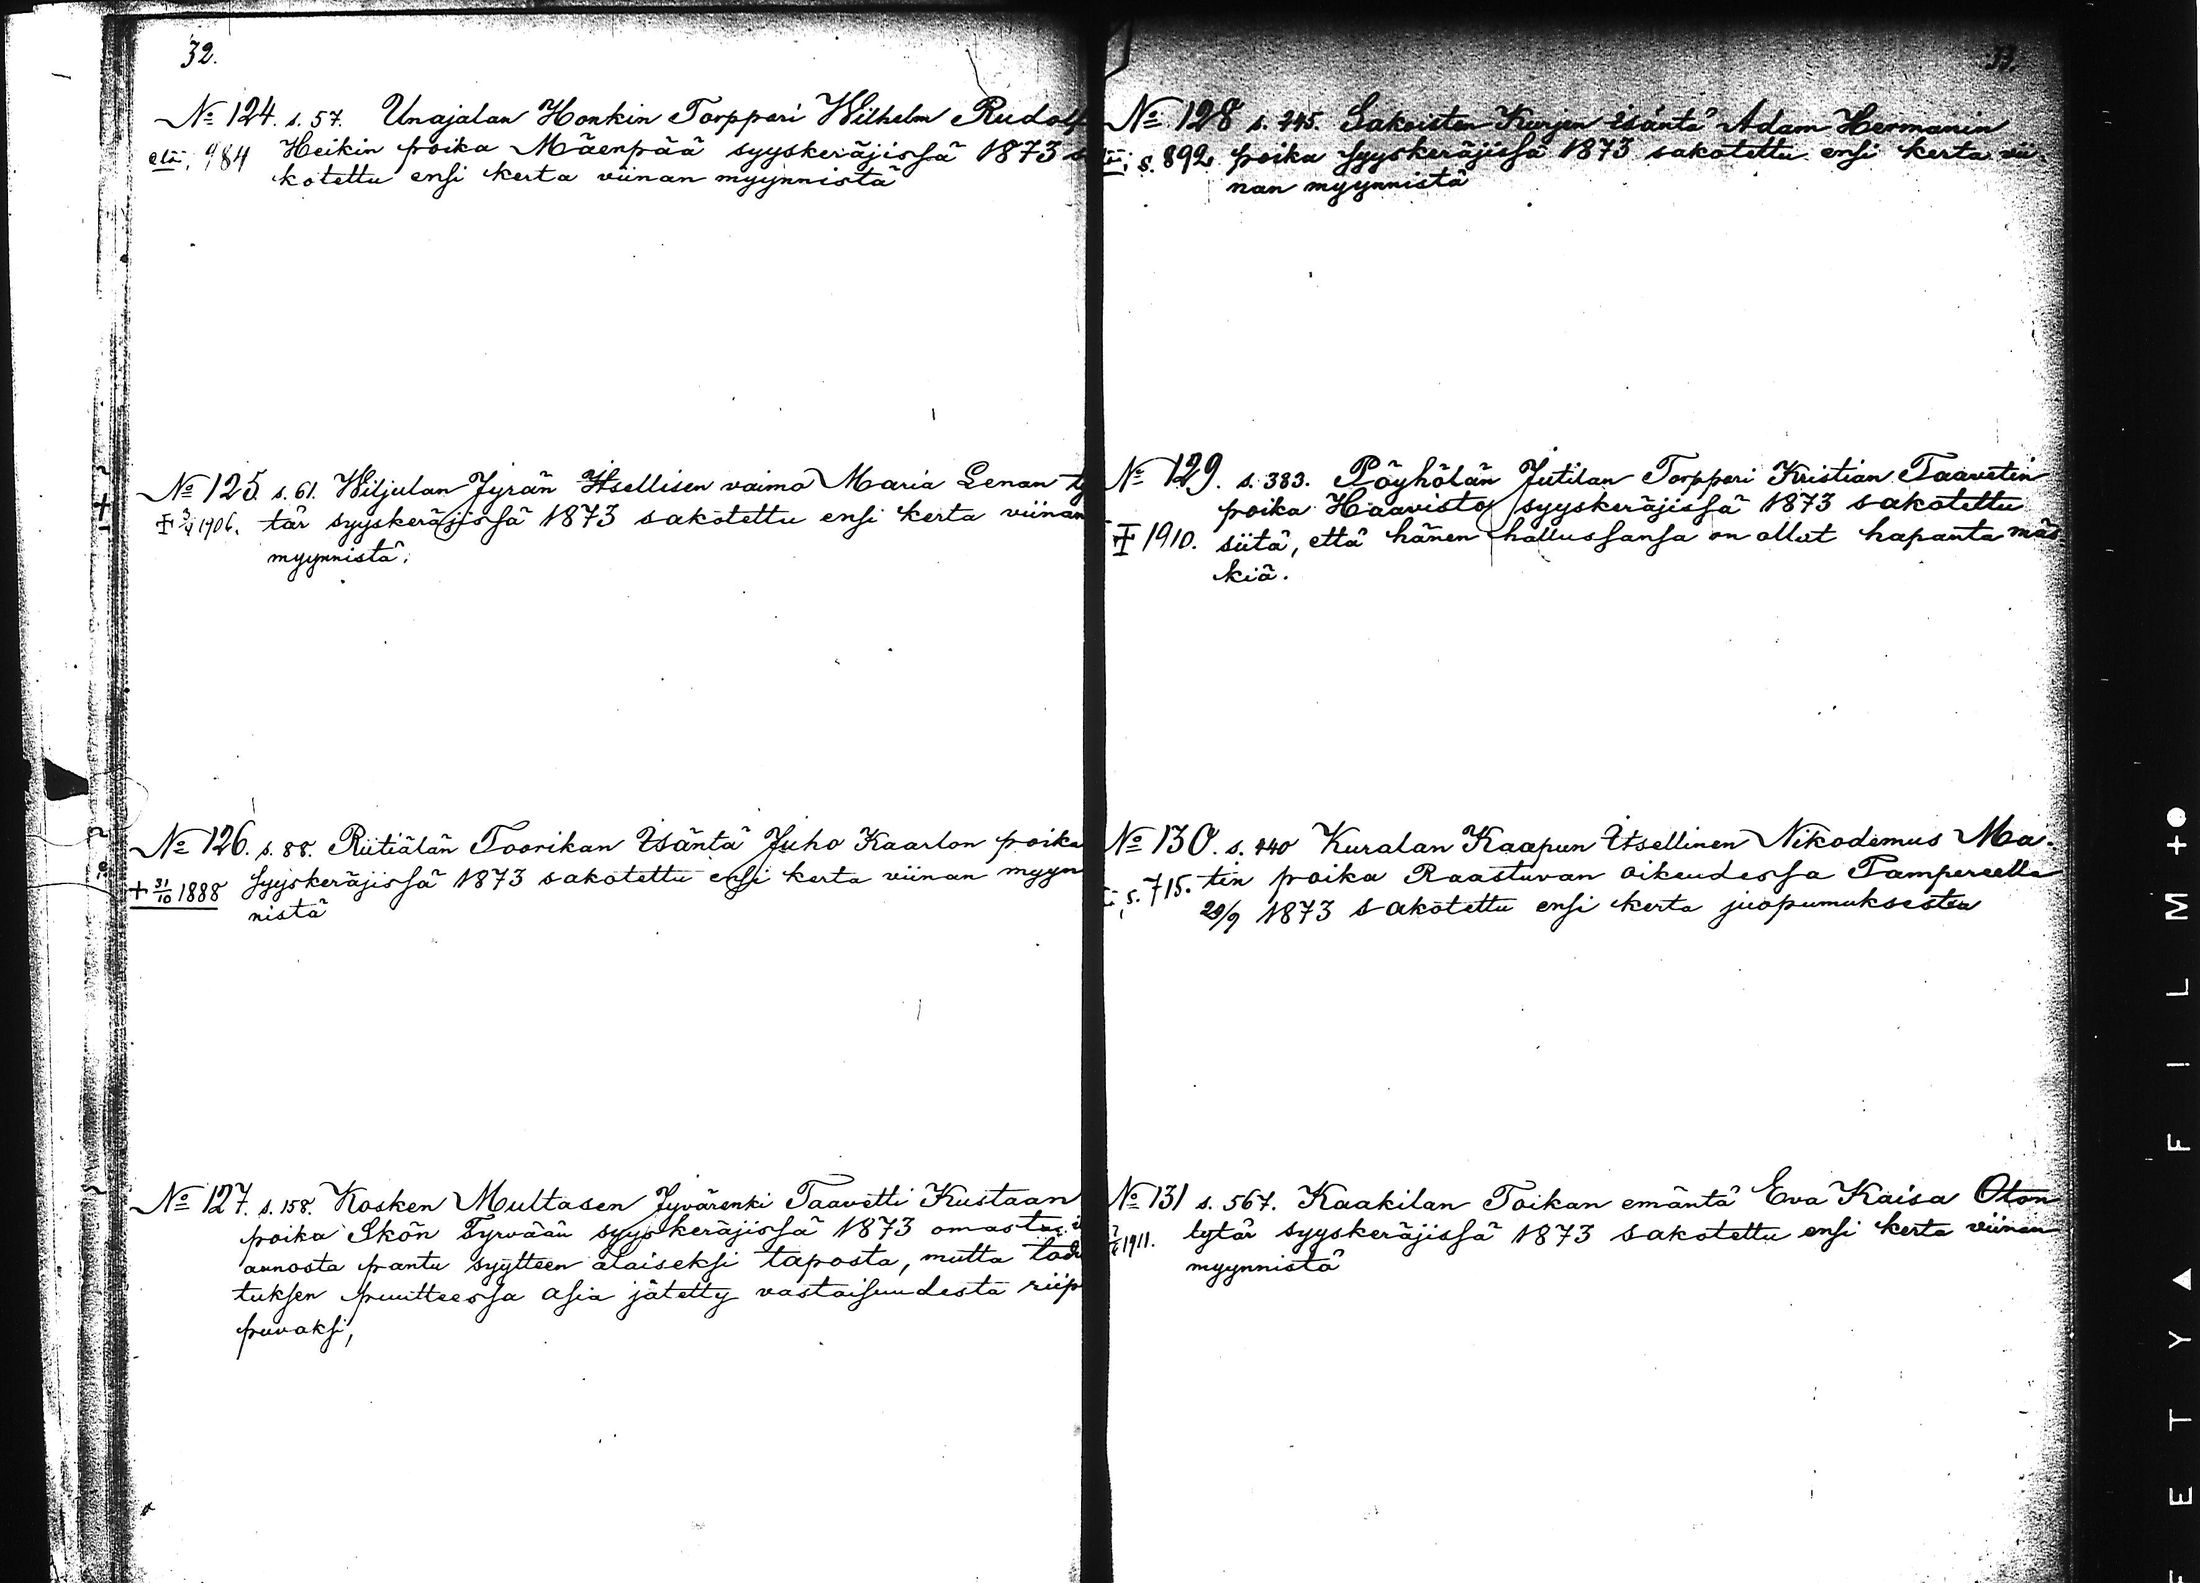 32.
№ 124. s. 57. Unajalan Honkin Torppari Wilhelm Rudolf
elä, 984 Heikin poika Mäenpää syyskeräjissä 1873 s
kotettu ensi kerta viinan myynnistä
№ 125 s. 61. Wiljulan Jyrän Itsellisen vaimo Maria Lenan ty
1906. tär syyskeräjissä 1873 sakotettu ensi kerta viinan
myynnistä.
№ 126. s. 88. Riitiälän Toorikan Isäntä Juho Kaarlon poika
+ 31/10 1888 syyskeräjissä 1873 sakotettu ensi kerta viinan myyn
nistä
№ 127. s. 158. Kosken Multasen Jyvärenki Taavetti Kustaan
poika Skön Tyrvään syyskeräjissä 1873 omasta
annosta pantu syytteen alaiseksi taposta, mutta tod
tuksen puutteessa asia jätetty vastaisuudesta riip
puvaksi,
33.
№ 128 s. 245. Sakoisten Kurjen isäntä Adam Hermanin
s. 892 poika syyskeräjissä 1873 sakotettu ensi kerta vii
nan myynnistä
№ 129. s. 383. Pöyhölän Jutilan Torppari Kristian Taavetin
poika Haavisto syyskeräjissä 1873 sakotettu
1910. siitä, että hänen hallussansa on ollut hapanta mäs
kiä.
№ 130. s. 440 Kuralan Kaapun Itsellinen Nikodemus Ma-
s. 715. tin poika Raastuvan oikeudessa Tampereella
29/9 1873 sakotettu ensi kerta juopumuksesta
№ 131 s. 567. Kaakilan Toikan emäntä Eva Kaisa Oton
1911. tytär syyskeräjissä 1873 sakotettu ensi kerta viinan
myynnistä
E T Y ▲ F I L M +